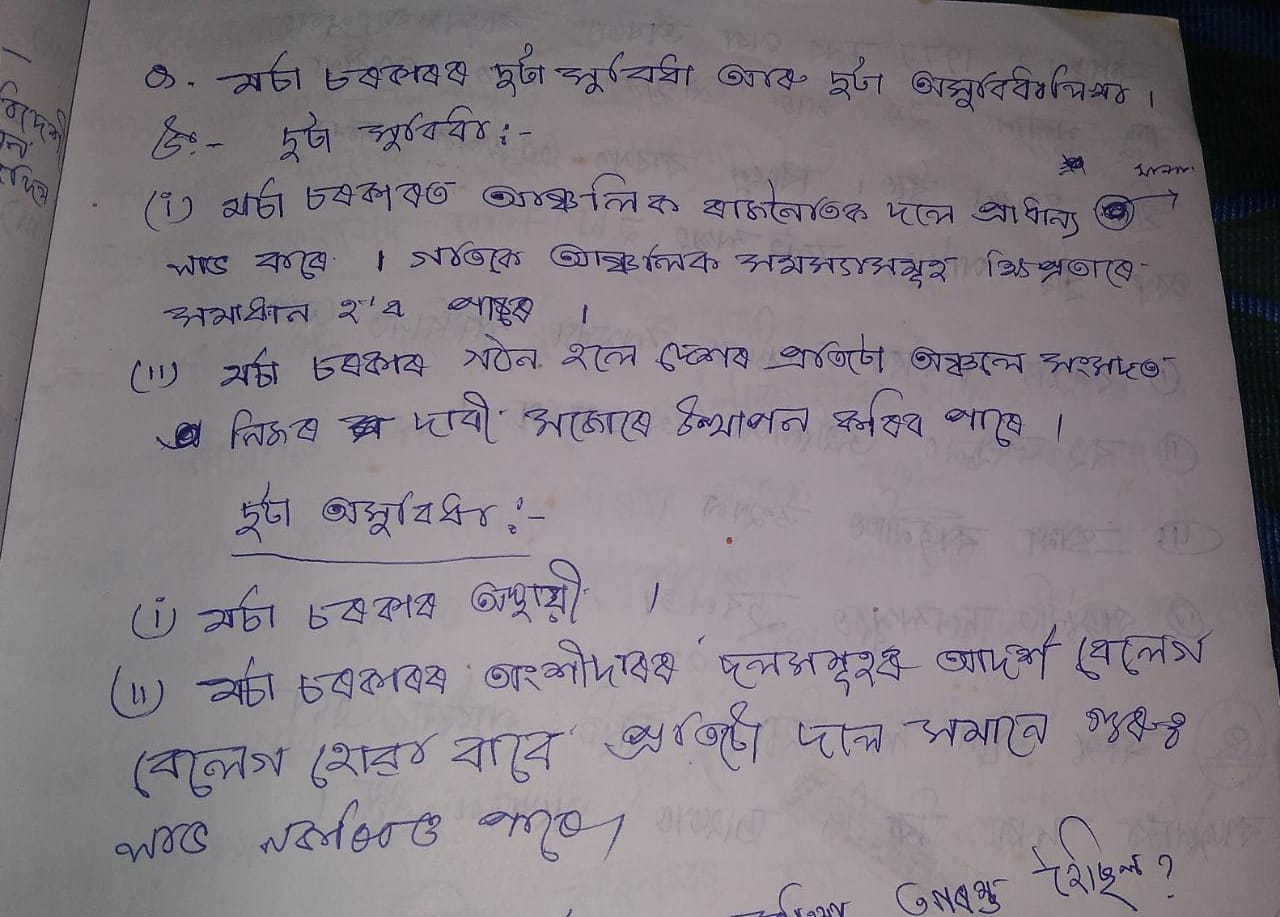 ৪. মৰ্চা চৰকাৰৰ দুটা সুবিধা আৰু দুটা অসুবিধা লিখা ।
উঃ- দুটা সুবিধা :-
(i) মৰ্চা চৰকাৰত আঞ্চলিক ৰাজনৈতিক দলে প্ৰাধান্য
লাভ কৰে । গতিকে আঞ্চলিক সমস্যাসমূহ ক্ষিপ্ৰতাৰে
সমাধান হ'ব পাৰে ।
(ii) মৰ্চা চৰকাৰ গঠন হলে দেশৰ প্ৰতিটো অঞ্চলে সংসদত
নিজৰ দাবী সজোৰে উত্থাপন কৰিব পাৰে ।
দুটা অসুবিধা :-
(i) মৰ্চা চৰকাৰ অস্থায়ী ।
(ii) মৰ্চা চৰকাৰৰ অংশীদাৰৰ দলসমূহৰ আদৰ্শ বেলেগ
বেলেগ হোৱা বাবে প্ৰতিটো দলে সমানে গুৰুত্ব
লাভ নকৰিবও পাৰে।
হৈছিল?